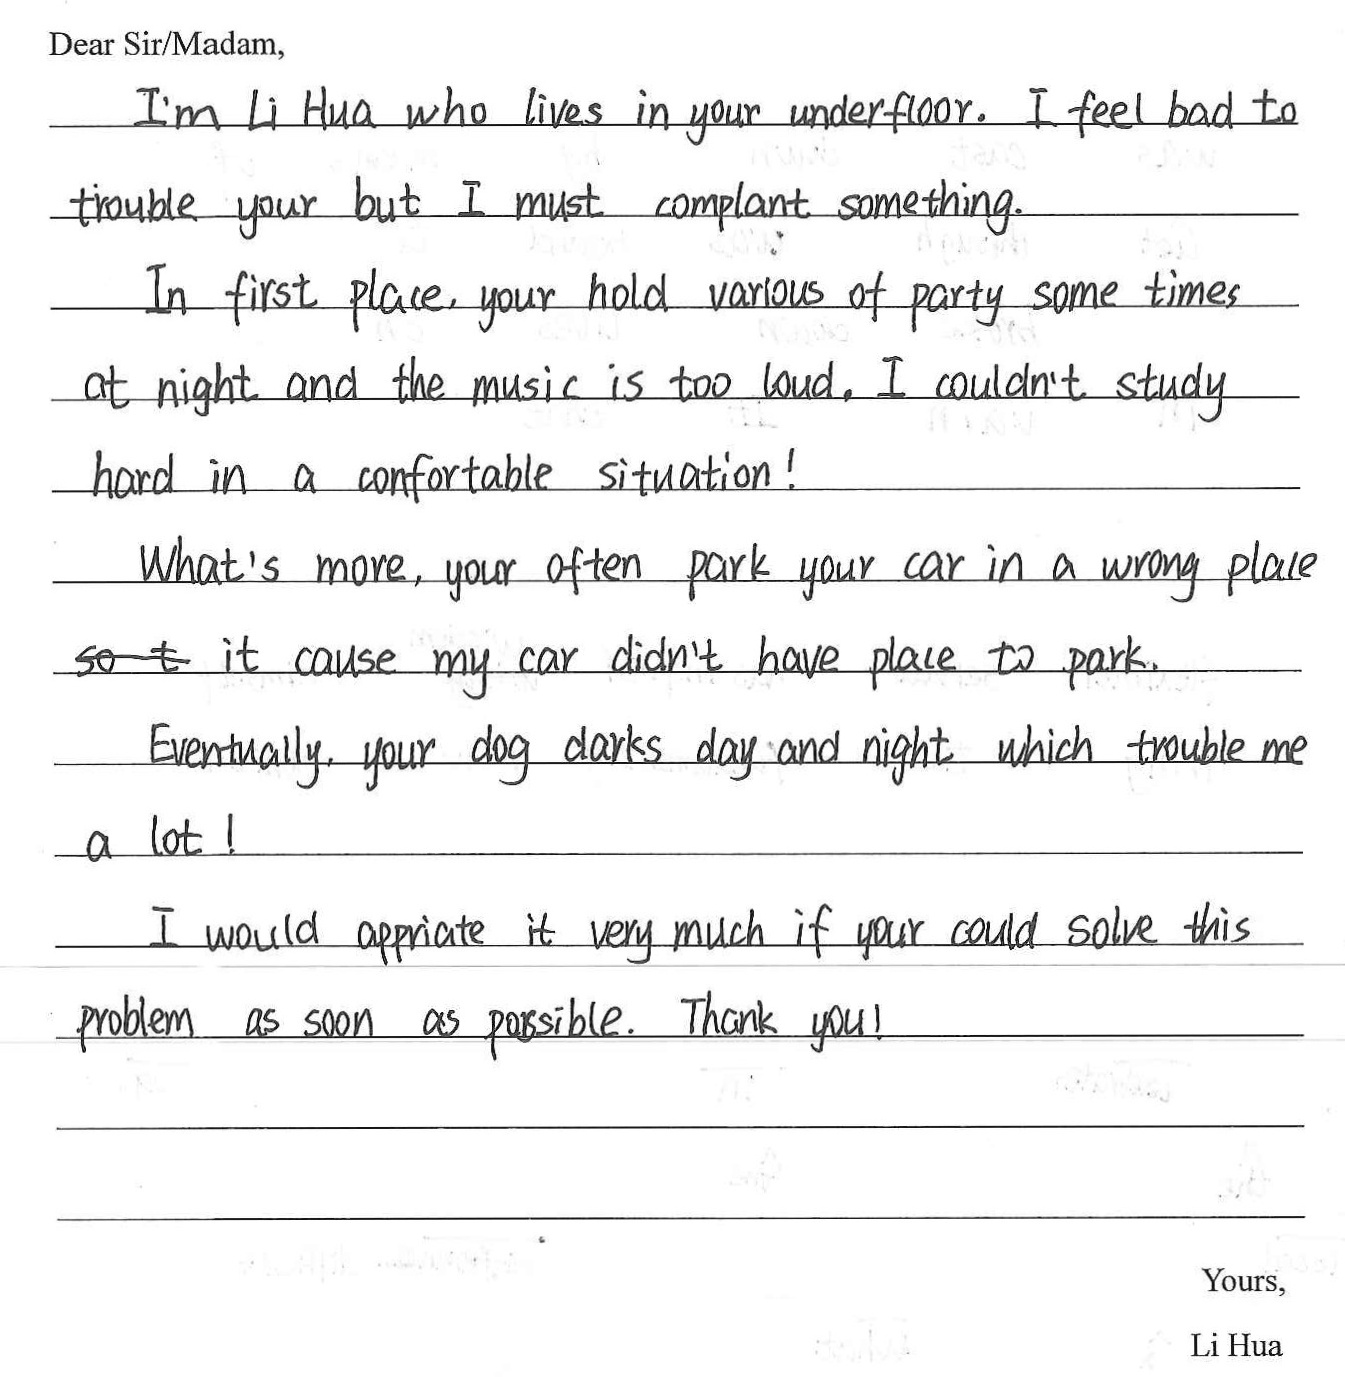 Dear Sir/Madam,
I'm Li Hua who lives in your underfloor. I feel bad to
trouble your but I must complant something.
In first place, your hold various of party some times
at night and the music is too loud. I couldn't study
hard in a confortable situation!
What's more, your often park your car in a wrong place
so t it cause my car didn't have place to park.
Eventually, your dog darks day and night which trouble me
a lot!
I would appriate it very much if your could solve this
problem as soon as possible. Thank you!
Yours,
Li Hua